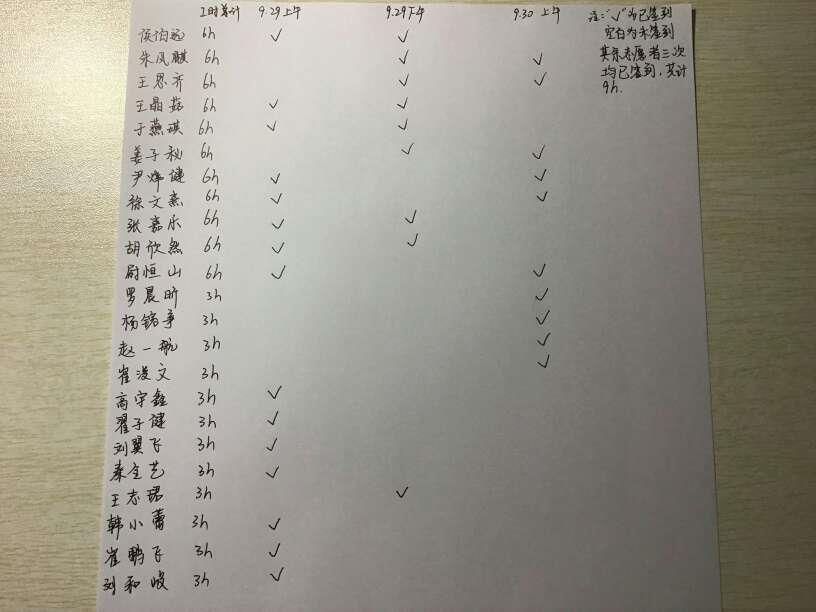 工时总计 9.29上午 9.29下午 9.30 上午
侯怡 6h ✓ ✓
朱凤麒 6h ✓ ✓
王思齐 6h ✓ ✓
王晶茹 6h ✓ ✓
于燕琪 6h ✓ ✓
姜子秘 6h ✓ ✓
尹炜健 6h ✓ ✓
徐文熹 6h ✓ ✓
张嘉乐 6h ✓ ✓
胡欣然 6h ✓ ✓
尉恒山 6h ✓ ✓
罗晨昕 3h ✓
杨铭争 3h ✓
赵一航 3h ✓
崔浚文 3h ✓
高宇鑫 3h ✓
翟子健 3h ✓
刘翼飞 3h ✓
秦全艺 3h ✓
王志珺 3h ✓
韩小蕾 3h ✓
崔鹏飞 3h ✓
刘和峻 3h ✓
注:“✓”为已签到
空白为未签到
其余志愿者三次
均已签到,共计
9h.